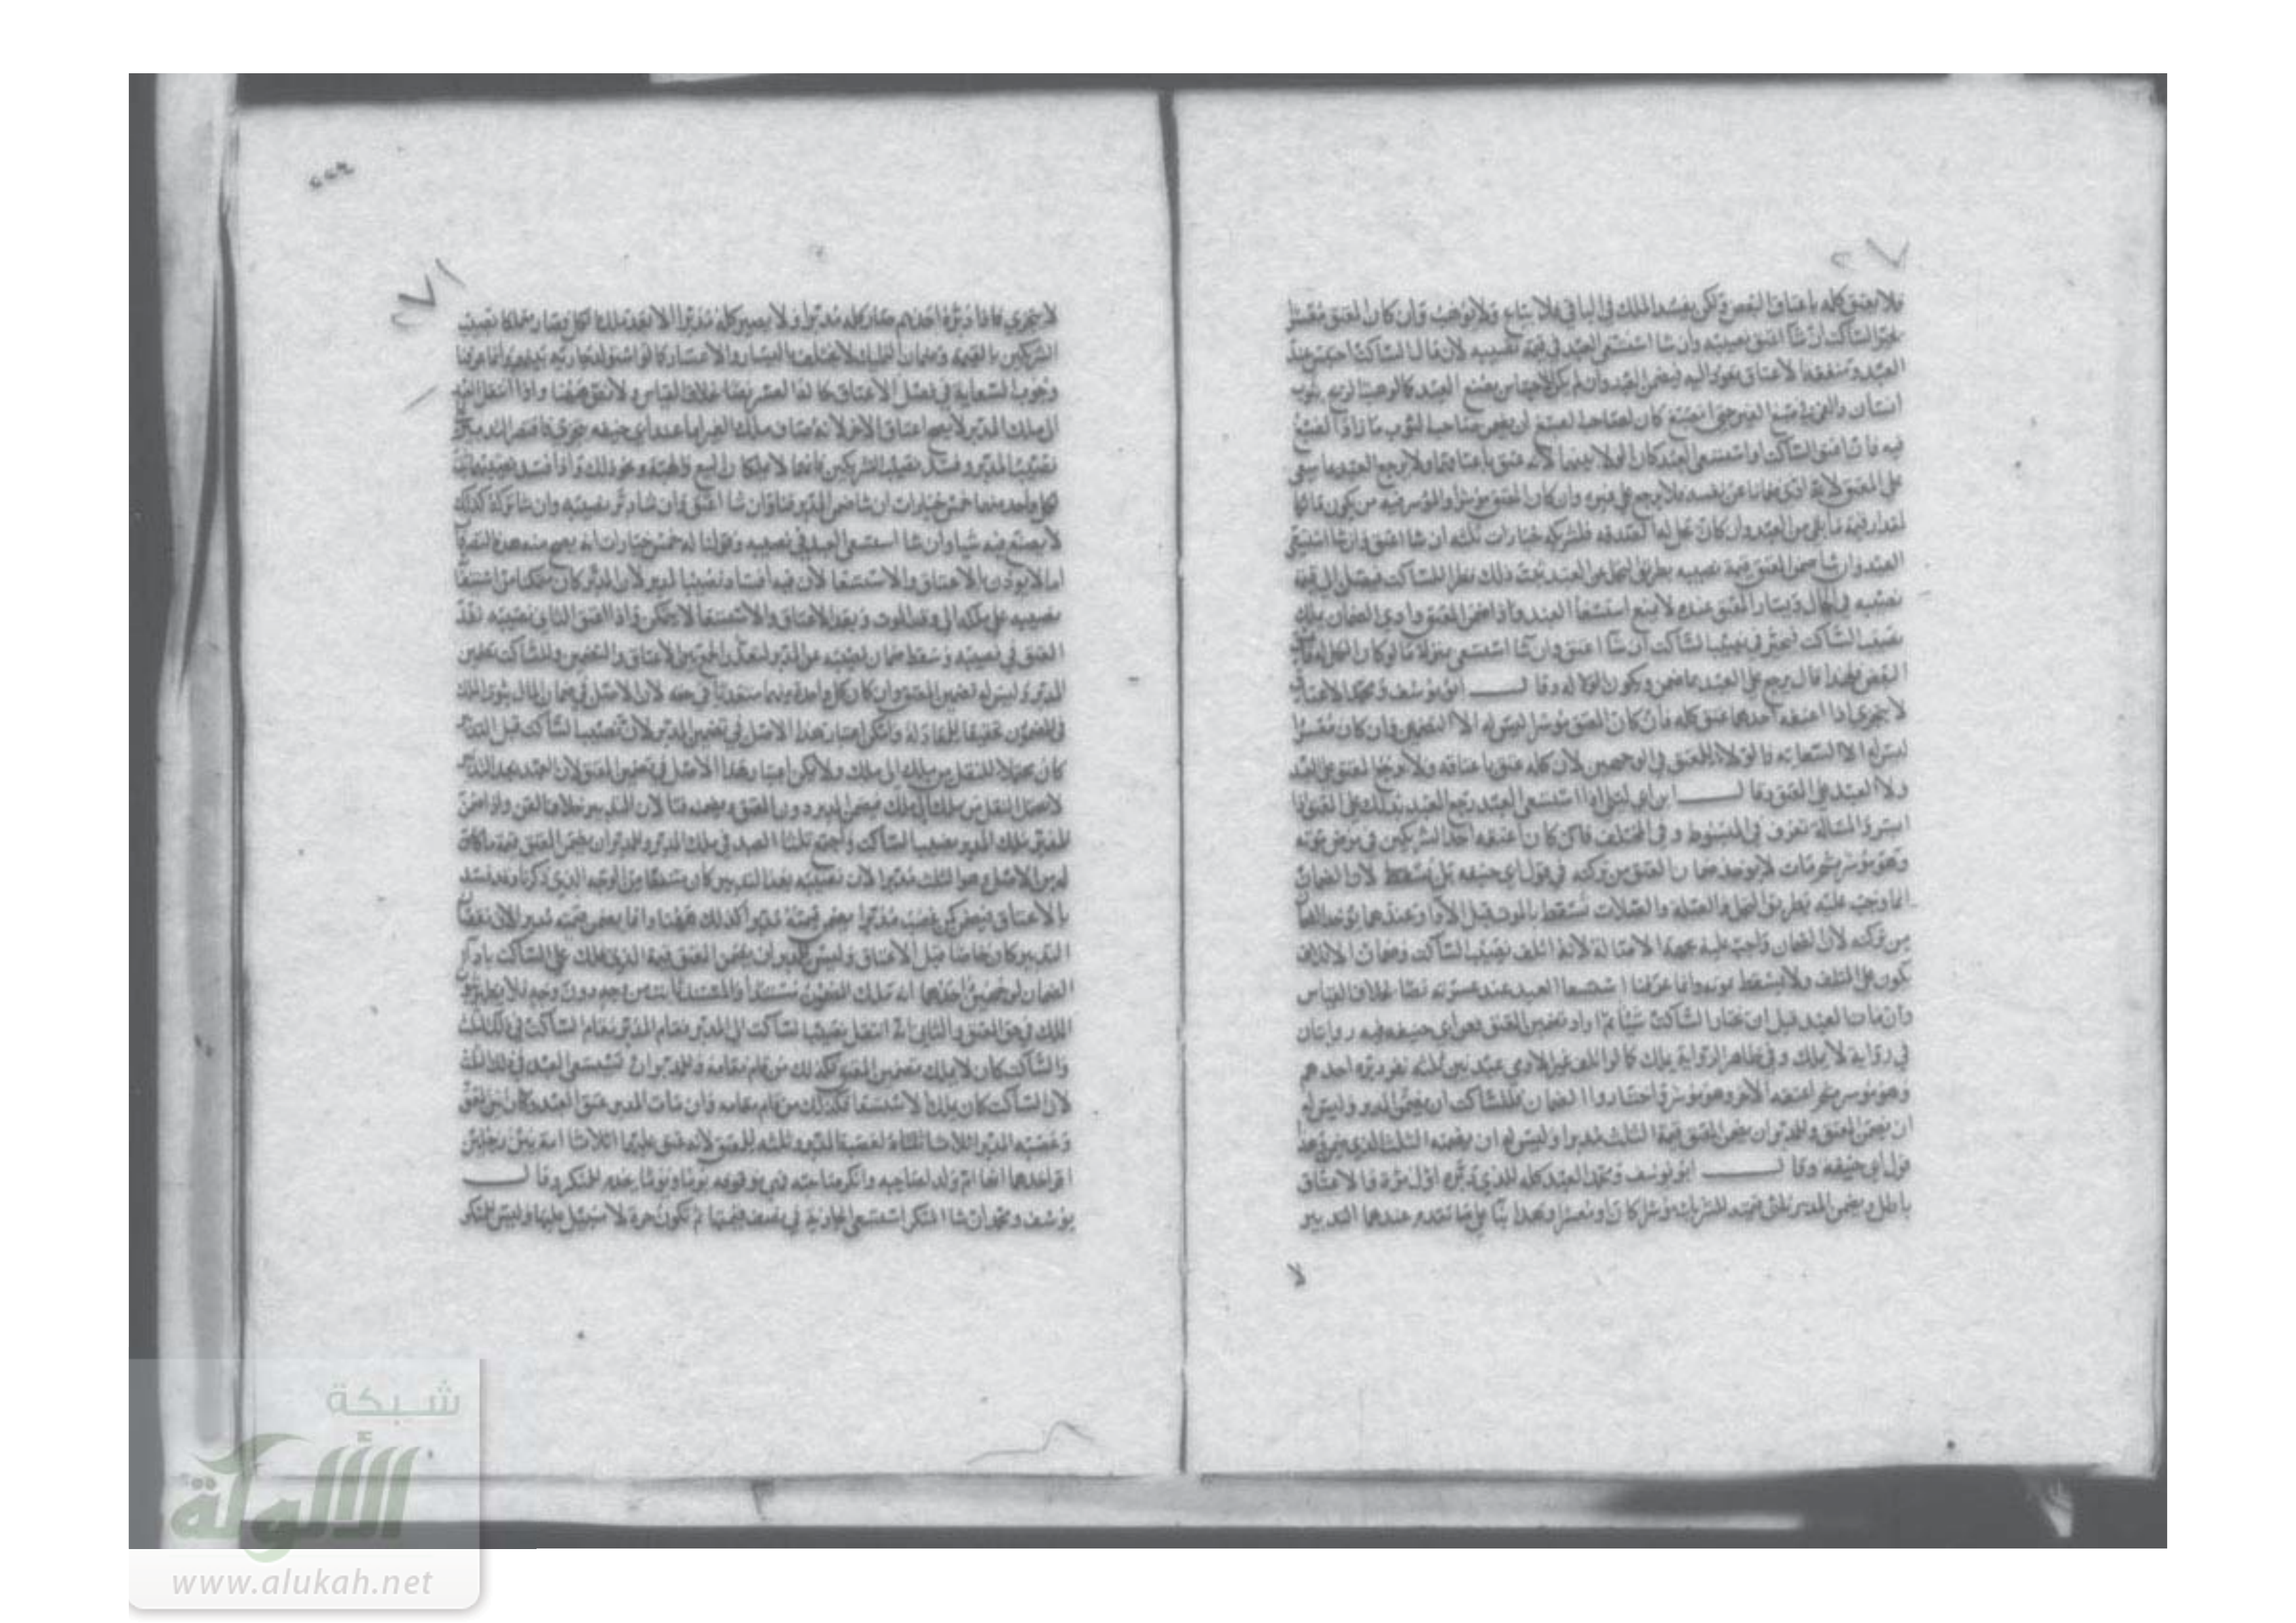 فلا يعتق كله باعتاق البعض ولكن يفسد الملك في الباقي فلا يباع ولا يوهب وان كان المعتق معسرا
يخير الساكت ان شا اعتق نصيبه وان شا استسعى العبد في قيمة نصيبه لان مال الساكت احتبس عند
العبد ومنفعة الاعتاق تعود اليه فيضمن العبد وان لم يكن الاحتباس بصنع العبد كما لو هبت الريح بثوب
انسان والقي في صبغ الغير حتى انصبغ كان لصاحب الصبغ ان يضمن صاحب الثوب ما زاد الصبغ
فيه فان اعتق الساكت او استسعى العبد كان الولا بينهما لانه عتق باعتاقهما ولا يرجع العبد بما سعى
على المعتق لانه ادى ضمانا عن نفسه فلا يرجع على غيره وان كان المعتق موسرا والموسر فيه من يكون مالكا
لمقدار قيمة ما بقي من العبد وان كان تحل له الصدقة فلشريكه خيارات ثلثة ان شا اعتق وان شا استسعى
العبد وان شا ضمن المعتق قيمة نصيبه بطريق التحمل عن العبد يثبت ذلك نظرا للساكت فيصل الى قيمة
نصيبه في الحال ويسار المعتق عنده لا يمنع استسعا العبد واذا ضمن المعتق وادى الضمان يملك
نصيب الساكت فيخير في نصيب الساكت ان شا اعتق وان شا استسعى بمنزلة ما لو كان الكل له فاعتق
البعض فلهذا قال يرجع على العبد بما ضمن ويكون الولا له وقال ابو يوسف ومحمد الاعتاق
لا يتجزى اذا اعتقه احدهما عتق كله فان كان المعتق موسرا ليس له الا التضمين وان كان معسرا
ليس له الا السعاية والولا للمعتق في الوجهين لان كله عتق باعتاقه ولا يرجع المعتق على العبد
ولا العبد على المعتق وقال ابن ابي ليلى اذا استسعى العبد رجع العبد بذلك على المعتق اذا
ايسر والمسالة تعرف في المبسوط وفي المختلف فان كان اعتقه احد الشريكين في مرض موته
وهو موسر ثم مات لا يوخذ ضمان العتق من تركته في قول ابي حنيفه بل يسقط لان الضمان
انما وجب عليه بطريق التحمل والصلة والصلات تسقط بالموت قبل الادا وعندهما يوخذ الضمان
من تركته لان الضمان واجب عليه بجهة الاصالة لانه اتلف نصيب الساكت وضمان الاتلاف
يكون على المتلف ولا يسقط بموته وانما عرفنا استسعا العبد عند عسرته نصا بخلاف القياس
وان مات العبد قبل ان يختار الساكت شيئا ثم اراد تضمين المعتق فعن ابي حنيفه فيه روايتان
في رواية لا يملك وفي ظاهر الرواية يملك كما لو اتلف غير الادمي عبد بين ثلثه نفر دبره احدهم
وهو موسر ثم اعتقه الاخر وهو موسر فاختاروا الضمان فللساكت ان يضمن المدبر وليس له
ان يضمن المعتق وللمدبر ان يضمن المعتق قيمة الثلث مدبرا وليس له ان يضمنه الثلث الذي ضمن وهذا
قول ابي حنيفه وقال ابو يوسف ومحمد العبد كله للذي دبره اول مرة فالاعتاق
باطل ويضمن المدبر ثلثي قيمته لشريكيه موسرا كان او معسرا وهذا بنا على ما تقدم عندهما التدبير
لا
لا يتجزى فاذا دبره احدهم صار كله مدبرا ولا يصير كله مدبرا الا بعد تملك الكل فصار متملكا نصيب
الشريكين بالقيمة وضمان التمليك لا يختلف باليسار والاعسار كما لو استولد جارية بينهم وانما عرفنا
وجوب السعاية في فصل الاعتاق كما اذا اعسر نصا بخلاف القياس ولا نص ههنا واذا انتقل الى
ملك المدبر لا يصح اعتاق الاخر لانه صادف ملك الغير اما عند ابي حنيفه يتجزى فاقتصر التدبير على
نصيب المدبر وفسد نصيب الشريكين فانهما لا يملكان البيع والهبة ونحو ذلك واذا فسد نصيبهما كان
لكل واحد منهما خمس خيارات ان شا ضمن المدبر قنا وان شا اعتق وان شا دبر نصيبه وان شا تركه كذلك
لا يصنع فيه شيا وان شا استسعى العبد في نصيبه وقولنا له خمس خيارات انه يصح منه هذه التصرفات
اما لا يوذن بالاعتاق والاستسعا لان فيه افساد نصيب المدبر لان المدبر كان متمكنا من استبقا
نصيبه على ملكه الى وقت الموت وبعد الاعتاق والاستسعا لا يتمكن واذا اعتق الثاني نصيبه نفذ
العتق في نصيبه وسقط ضمان نصيبه عن المدبر لتعذر الجمع بين الاعتاق والتضمين وللساكت تضمين
المدبر وليس له تضمين المعتق وان كان كل واحد منهما متعديا في حقه لان الاصل في ضمان المال ثبوت الملك
في المضمون تحقيقا للمعادلة وامكن اعتبار هذا الاصل في تضمين المدبر لان نصيب الساكت قبل التدبير
كان محتملا للنقل من ملك الى ملك ولا يمكن اعتبار هذا الاصل في تضمين المعتق لان العبد بعد التدبير
لا يحتمل النقل من ملك الى ملك فيضمن المدبر دون المعتق ويضمنه قنا لان التدبير صادف القن واذا ضمن
المدبر ملك المدبر نصيب الساكت واجتمع ثلثا العبد في ملك المدبر وللمدبر ان يضمن المعتق قيمة ما كان
له من الاصل وهو الثلث مدبرا لان نصيبه بعد التدبير كان منتفعا من الوجه الذي ذكرنا وقد فسد
بالاعتاق فيضمن كمن غصب مدبرا يضمن قيمته مدبرا كذلك ههنا وانما يضمن قيمته مدبرا لان نقصان
التدبير كان حاصلا قبل الاعتاق وليس للمدبر ان يضمن المعتق قيمة الذي تملك على الساكت بادا
الضمان لوجهين احدهما انه تملك المضمون مستندا والمستند ثابت من وجه دون وجه فلا يظهر
الملك في حق المعتق والثاني انه انتقل نصيب الساكت الى المدبر فقام المدبر مقام الساكت في ذلك الثلث
والساكت كان لا يملك تضمين المعتق فكذلك من قام مقامه وللمدبر ان يستسعى العبد في ذلك الثلث
لان الساكت كان يملك الاستسعا فكذلك من قام مقامه وان مات المدبر عتق العبد وكان بين المعتق
وعصبة المدبر اثلاثا ثلثاه لعصبة المدبر وثلثه للمعتق لانه عتق عليهما اثلاثا امة بين رجلين
اقر احدهما انها ام ولد لصاحبه وانكر صاحبه فهي موقوفه يوما ويوما يخدم المنكر وقال
يوسف ومحمد ان شا المنكر استسعى الجارية في نصف قيمتها ثم تكون حرة لا سبيل عليها وليس للمنكر
شبكة
الألوكة
www.alukah.net